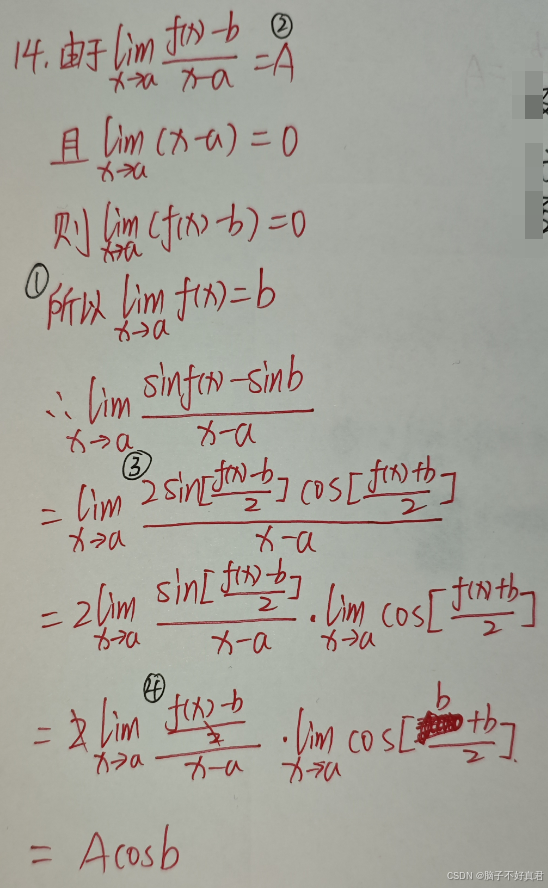 ②
14. 由于 lim x→a (f(x)-b)/(x-a) = A
且 lim x→a (x-a) = 0
则 lim x→a (f(x)-b) = 0
① 所以 lim x→a f(x) = b
∴ lim x→a (sinf(x)-sinb)/(x-a)
③
= lim x→a 2sin[(f(x)-b)/2] cos[(f(x)+b)/2]/(x-a)
= 2 lim x→a sin[(f(x)-b)/2]/(x-a) · lim x→a cos[(f(x)+b)/2]
④
= 2 lim x→a ((f(x)-b)/2)/(x-a) · lim x→a cos[(b+b)/2].
= Acosb
CSDN @脑子不好真君